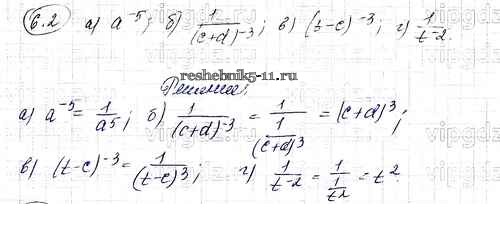 6.2 а) a⁻⁵; б) 1/(c+d)⁻³; в) (t-c)⁻³; г) 1/t⁻².
reshebnik5-11.ru
Решение:
а) a⁻⁵ = 1/a⁵; б) 1/(c+d)⁻³ = 1/(1/(c+d)³) = (c+d)³;
в) (t-c)⁻³ = 1/(t-c)³; г) 1/t⁻² = 1/(1/t²) = t².